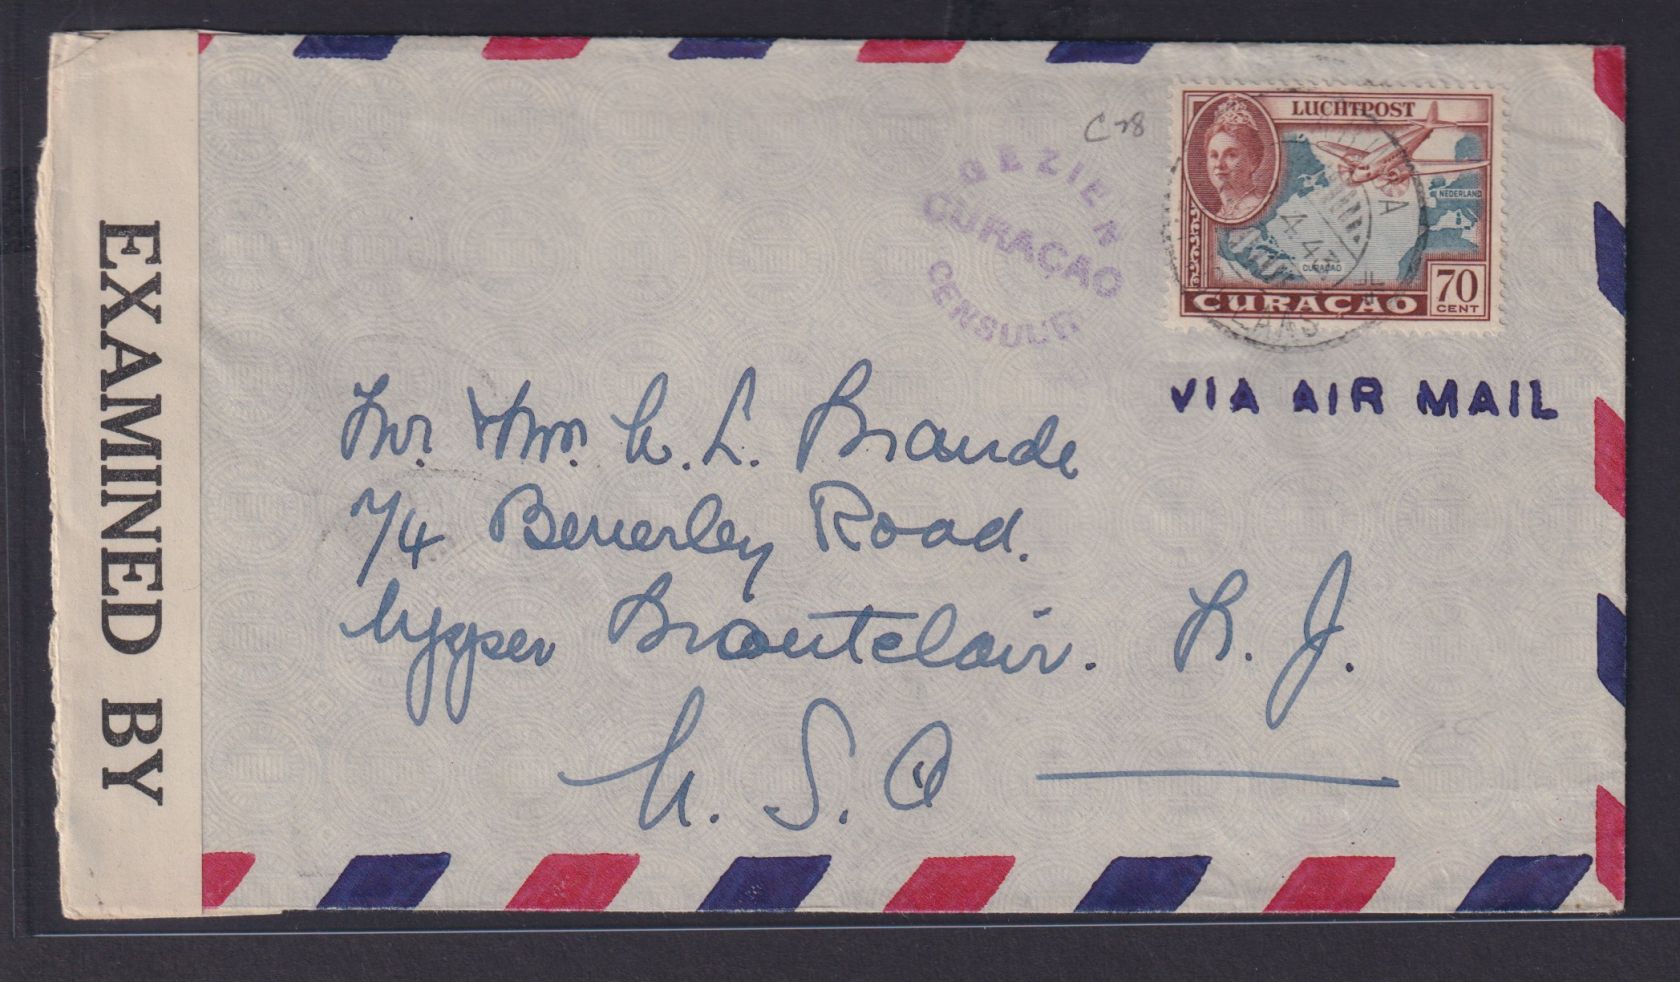 EXAMINED BY
C28
GEZIEN
CURAÇAO
CENSUUR
LUCHTPOST
NEDERLAND
CURAÇAO
70
CENT
CURAÇAO
4.43
VIA AIR MAIL
Mr. & Mrs. W. L. Brande
74 Beverley Road.
Upper Montclair. N. J.
U. S. A